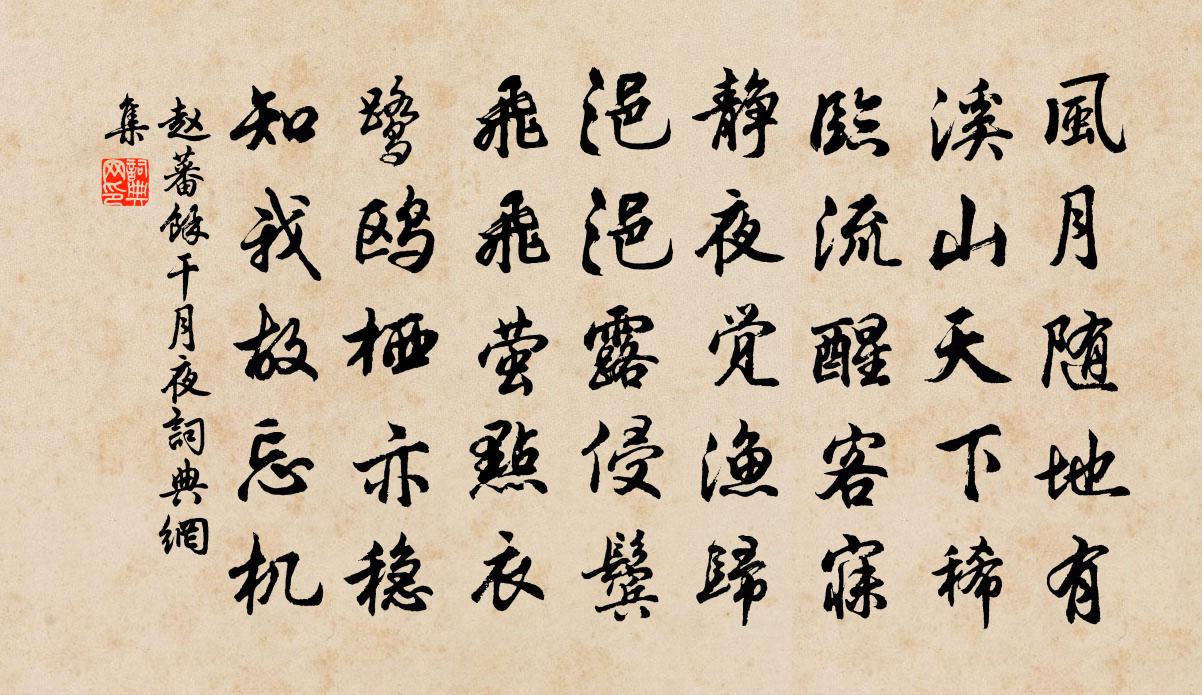 風月随地有
溪山天下稀
臨流醒客寐
静夜觉漁歸
浥浥露侵鬓
飛飛萤點衣
鹭鸥栖亦穏
知我故忘机
赵蕃餘干月夜詞典網
集
詞典网印